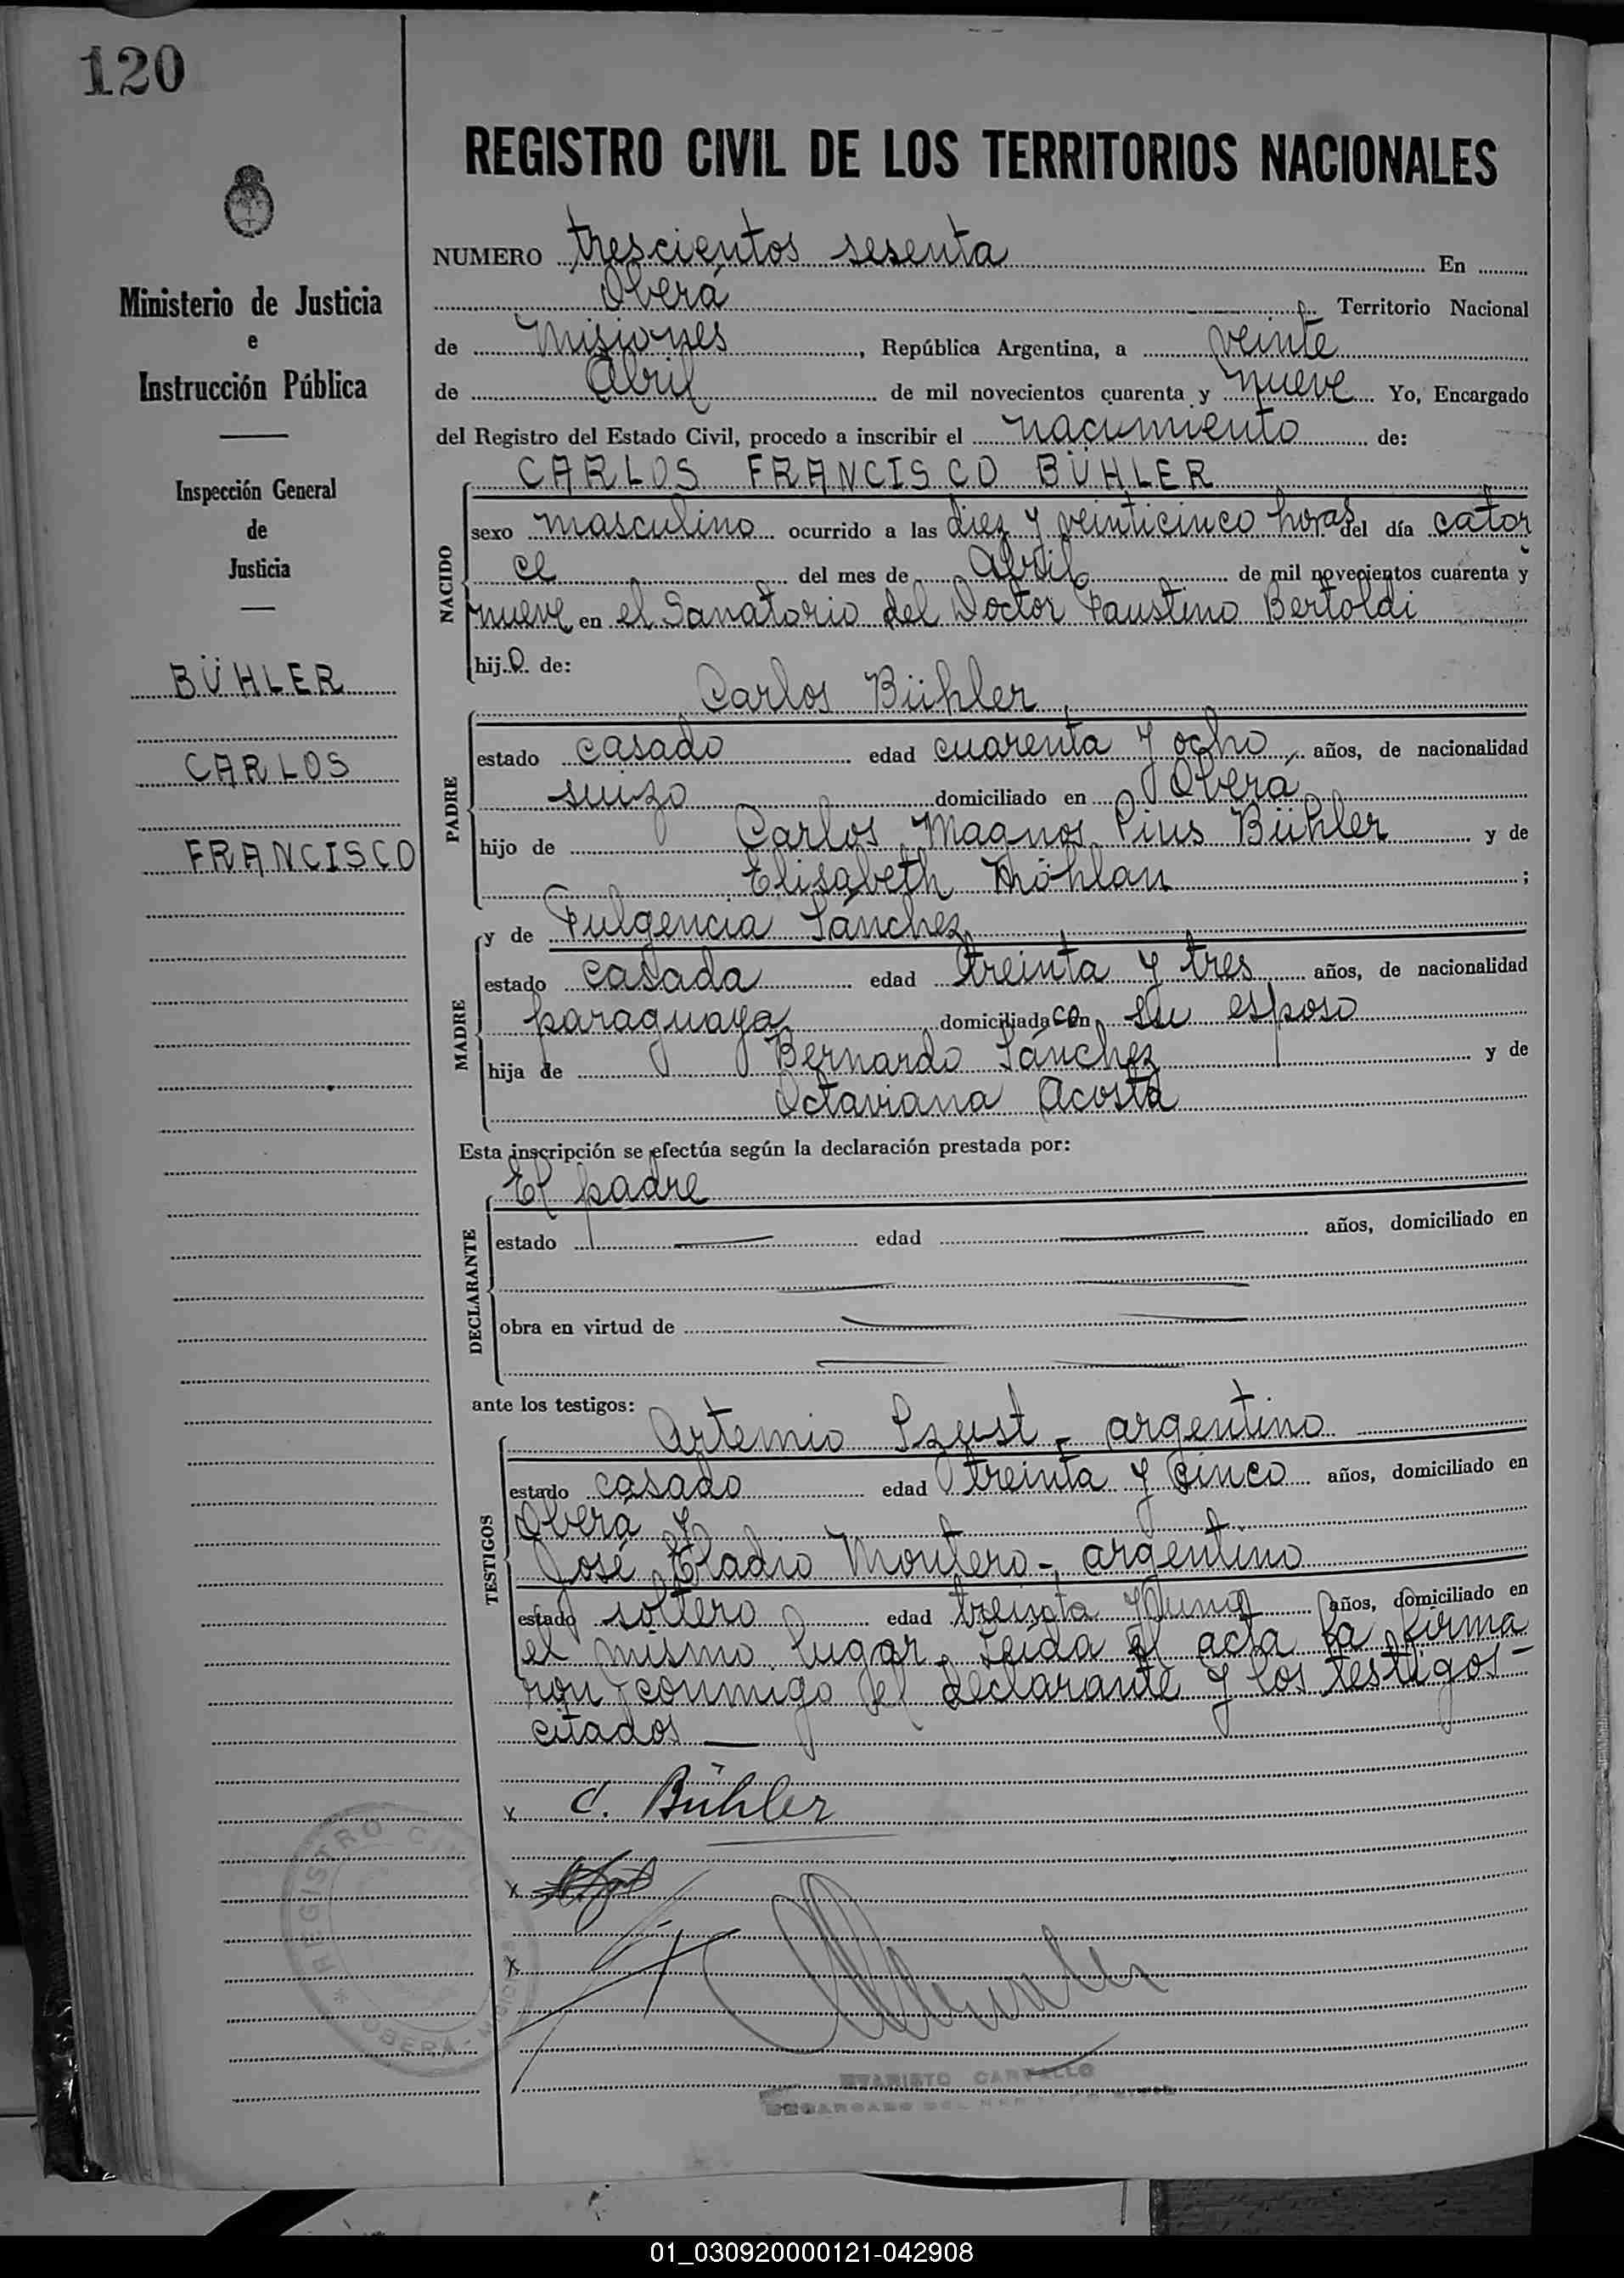 120
REGISTRO CIVIL DE LOS TERRITORIOS NACIONALES
NUMERO trescientos sesenta En
Oberá Territorio Nacional
de Misiones, República Argentina, a veinte
de Abril de mil novecientos cuarenta y nueve Yo, Encargado
del Registro del Estado Civil, procedo a inscribir el nacimiento de:
CARLOS FRANCISCO BÜHLER
NACIDO
sexo masculino ocurrido a las diez y veinticinco horas del día cator
ce del mes de Abril de mil novecientos cuarenta y
nueve en el Sanatorio del Doctor Faustino Bertoldi
hijo de:
Carlos Bühler
PADRE
estado casado edad cuarenta y ocho años, de nacionalidad
suizo domiciliado en Oberá
hijo de Carlos Magnos Pius Bühler y de
Elisabeth Möhlan;
y de Fulgencia Sánchez
MADRE
estado casada edad treinta y tres años, de nacionalidad
paraguaya domiciliada con su esposo
hija de Bernardo Sánchez y de
Octaviana Acosta
Esta inscripción se efectúa según la declaración prestada por:
El padre
DECLARANTE
estado — edad — años, domiciliado en
obra en virtud de
ante los testigos:
Artemio Szust - argentino
TESTIGOS
estado casado edad treinta y cinco años, domiciliado en
Oberá y
José Eladio Montero - argentino
estado soltero edad treinta y uno años, domiciliado en
el mismo lugar. Leída el acta la firma
ron conmigo el declarante y los testigos -
citados —
x C. Bühler
x
x
EVARISTO CARVALLO
ENCARGADO DEL REGISTRO CIVIL
Ministerio de Justicia
e
Instrucción Pública
Inspección General
de
Justicia
BÜHLER
CARLOS
FRANCISCO
REGISTRO CIVIL
* OBERÁ - MISIONES *
01_030920000121-042908